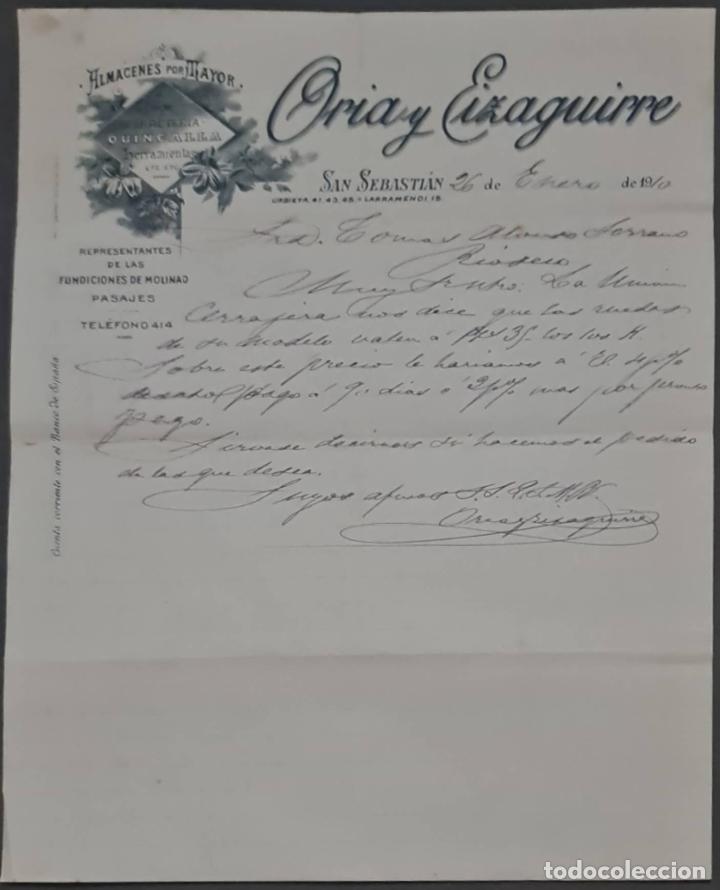 ALMACENES POR MAYOR
FERRETERIA
QUINCALLA
Herramientas
ETC. ETC.
Oria y Eizaguirre
SAN SEBASTIÁN 26 de Enero de 1910
URBIETA. 41. 43. 45. LARRAMENDI. 15.
REPRESENTANTES
DE LAS
FUNDICIONES DE MOLINAO
PASAJES
TELÉFONO 414
Cuenta corriente con el Banco de España
Sr. D. Tomas Alonso Serrano
Rioseco
Muy Sr. ntro. La Union
Cerrajera nos dice que las ruedas
de su modelo valen á Pts 35 los K.
Sobre este precio le hariamos á El
pago á 90 dias ó 2 p% mas por pronto
pago.
Sirvase decirnos si hacemos el pedido
de las que desea.
Suyos afmos S.S.
Oria y Eizaguirre
todocoleccion